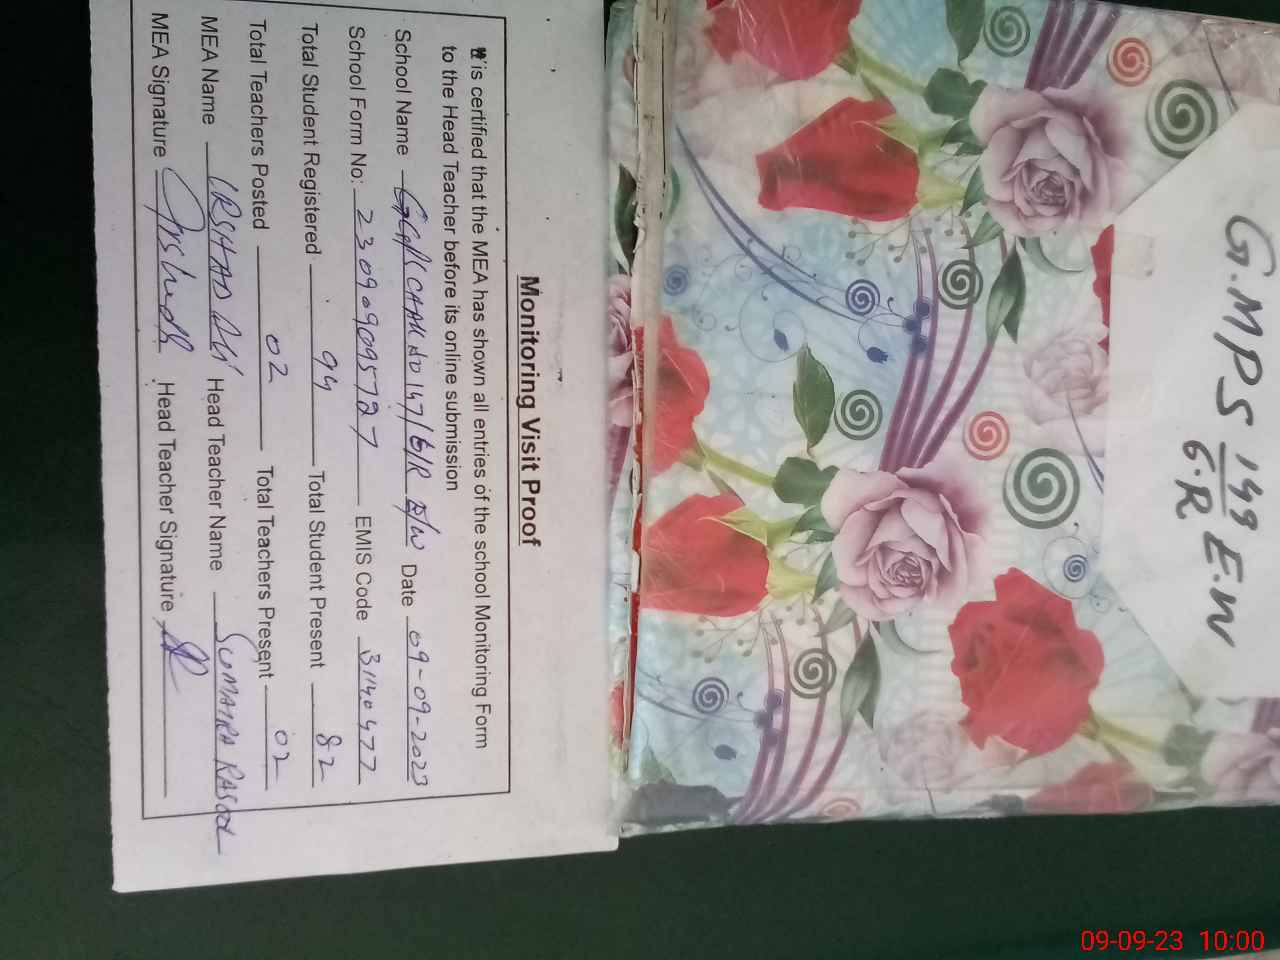 Monitoring Visit Proof
is certified that the MEA has shown all entries of the school Monitoring Form
to the Head Teacher before its online submission
School Name 147/6/R E/W Date 09-09-2023
School Form No: 230909095727 EMIS Code 31140477
Total Student Registered 94 Total Student Present 82
Total Teachers Posted 02 Total Teachers Present 02
MEA Name IRSHAD ALI Head Teacher Name SUMAIRA RASOOL
MEA Signature Head Teacher Signature
G.M.P.S 149 E.W
6.R
09-09-23 10:00